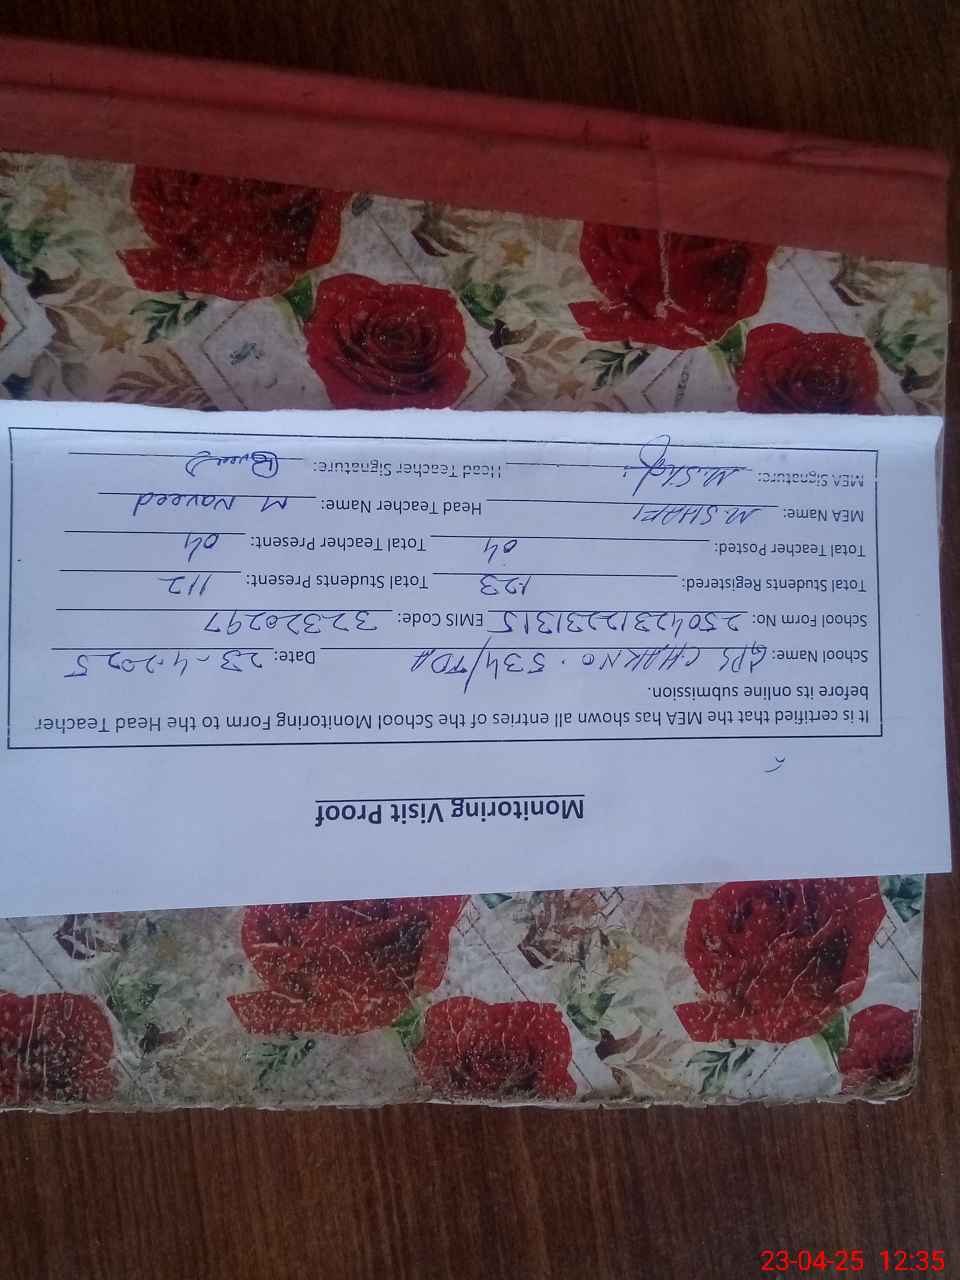 Monitoring Visit Proof
It is certified that the MEA has shown all entries of the School Monitoring Form to the Head Teacher
before its online submission.
School Name: GPS CHAK NO. 534/TDA Date: 23-4-2025
School Form No: 25042312231315 EMIS Code: 32320297
Total Students Registered: 123 Total Students Present: 112
Total Teacher Posted: 04 Total Teacher Present: 04
MEA Name: M. SHAFI Head Teacher Name: M Naveed
MEA Signature: M. Shafi Head Teacher Signature:
23-04-25 12:35